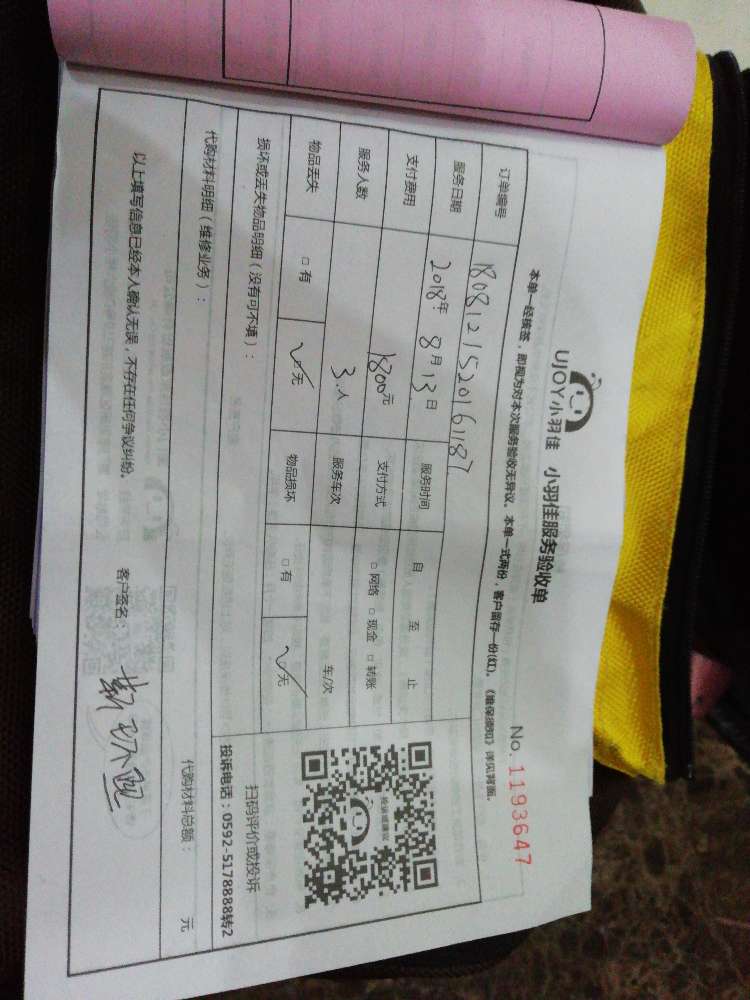 UJOY小羽佳 小羽佳服务验收单
No. 1193647
本单一经核签，即视为对本次服务验收无异议。本单一式两份，客户留存一份(红)。《维保须知》详见背面。
订单编号 1808121520161187
服务日期 2018年 8月13日 服务时间 自 至 止
支付费用 1800元 支付方式 □网络 □现金 □转账
服务人数 3人 服务车次 车/次
物品丢失 □有 ✓□无 物品损坏 □有 ✓□无
损坏或丢失物品明细（没有可不填）：
投诉或建议
扫码评价或投诉
投诉电话：0592-5178888转2
代购材料明细（维修业务）：
代购材料总额： 元
以上填写信息已经本人确认无误，不存在任何争议纠纷。 客户签名：